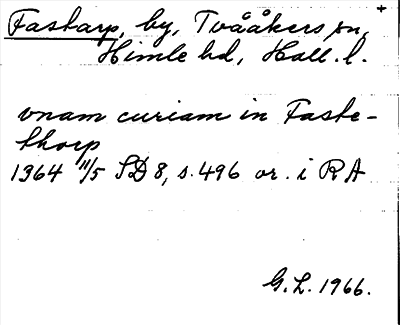 Fastarp, by, Tvååkers sn,
Himle hd, Hall. l.
vnam curiam in Faste-
thorp
1364 11/5 SD 8, s. 496 or. i RA
G.L. 1966.